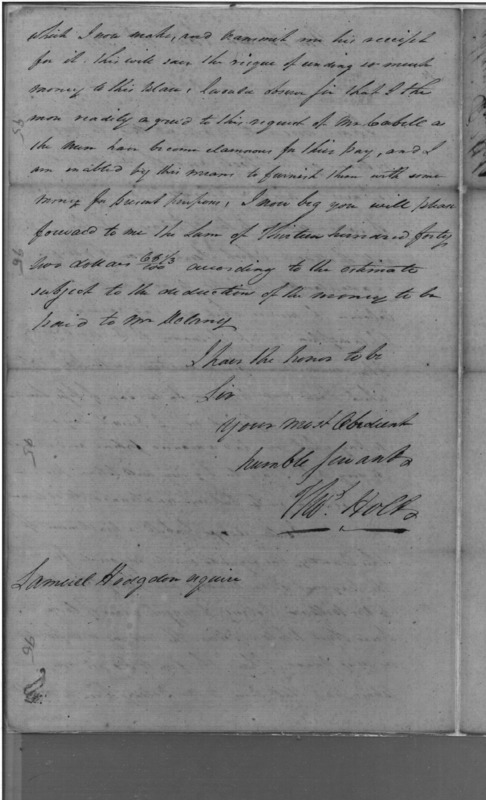 which I now make, and transmit you his receipt
for it. this will save the risque of sending so much
money to this place; I would observe sir that I the
more readily agreed to this request of Mr Cabell as
the men have become clamorous for their pay, and I
am enabled by this means to furnish them with some
money for present purposes; I now beg you will please
forward to me the sum of Thirteen hundred forty
two dollars 66 1/3/100 according to the estimate
subject to the deduction of the money to be
paid to Mr
I have the honor to be
Sir
Your most Obedient
humble Servant
Thos. Holt
Samuel Hodgdon esquire
95
96
95
96